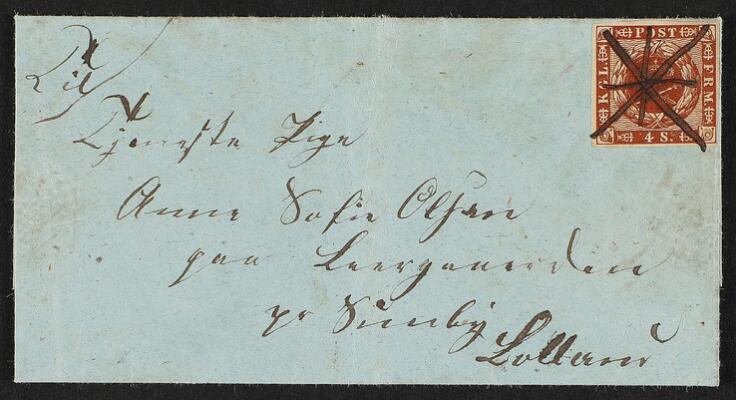 Til
Tjeneste Pige
Anne Sofie Olsen
paa Leergaaerden
pr Sundby
Lolland
KGL POST FRM
4 S.